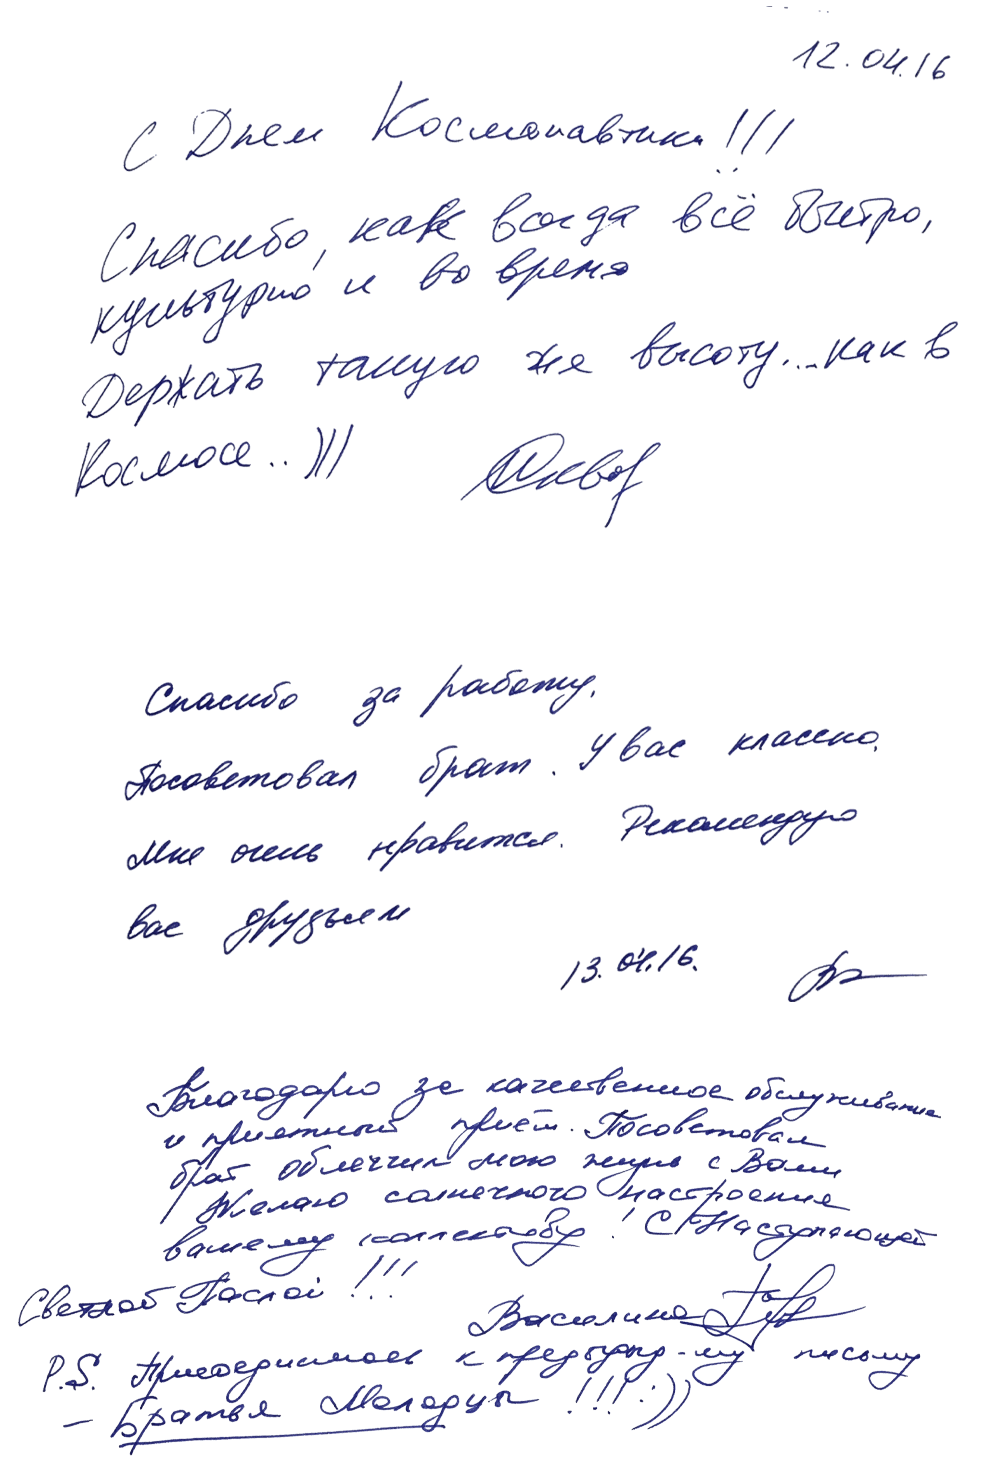 12.04.16
С Днем Космонавтики!!!
Спасибо, как всегда всё быстро,
культурно и во время
Держать такую же высоту... как в
Космосе..)))
Спасибо за работу.
Посоветовал брат. У вас классно.
Мне очень нравится. Рекомендую
вас друзьям
13.04.16.
Благодарю за качественное обслуживание
и приятный приём. Посоветовал
брат облегчил мою жизнь с Вами
Желаю солнечного настроения
вашему коллективу! С Наступающей
Светлой Пасхой!!!
Василина
P.S. Присоединяюсь к предыдущ-му письму
– Братья Молодцы!!!:))